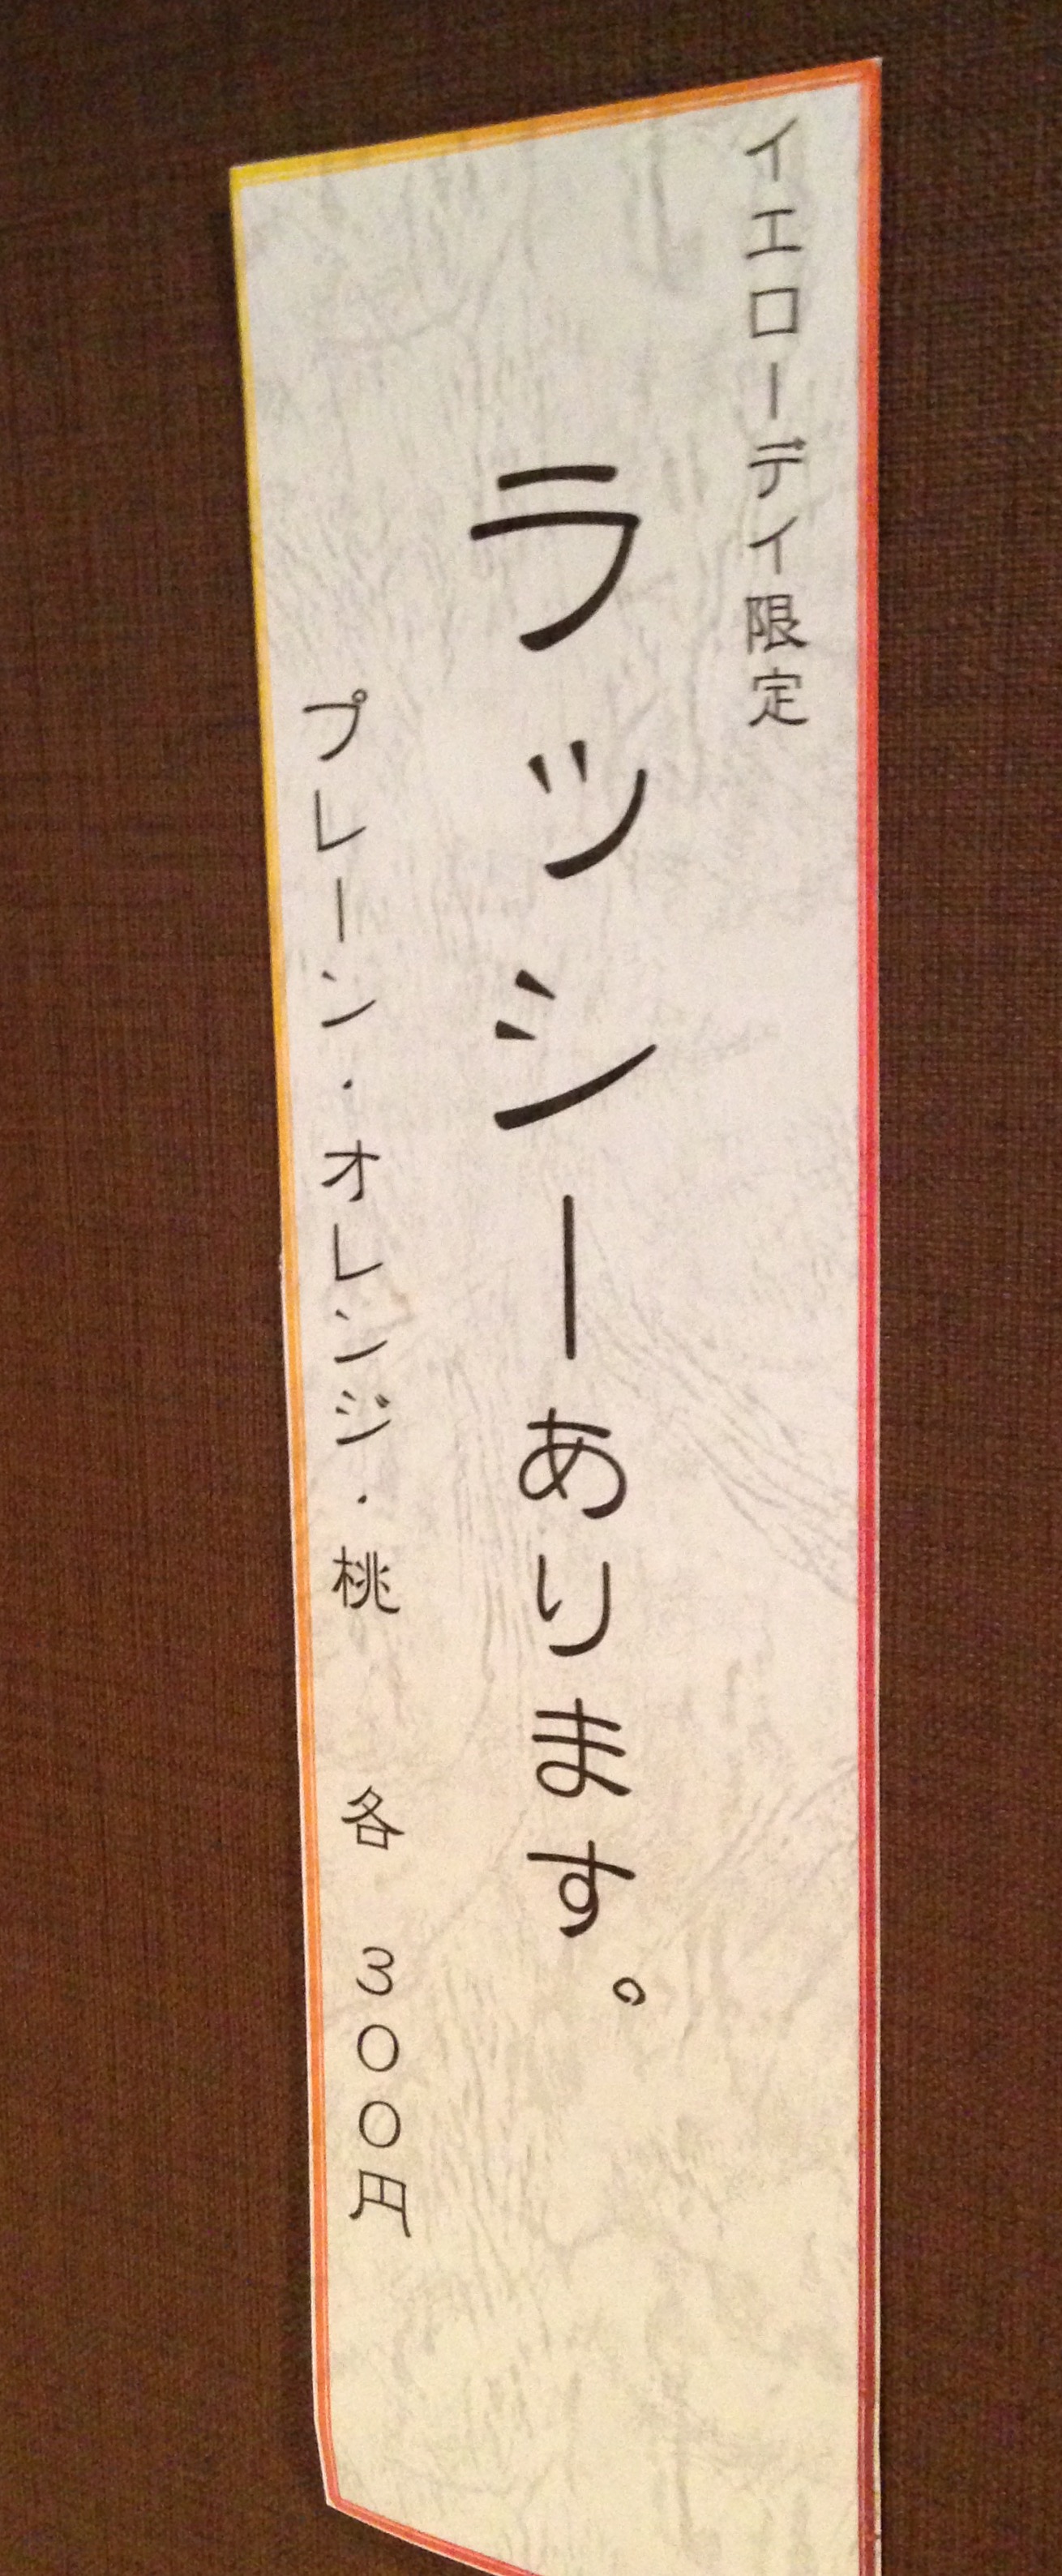 イエローディ限定
ラッシーあります。
プレーン・オレンジ・桃 各 300円